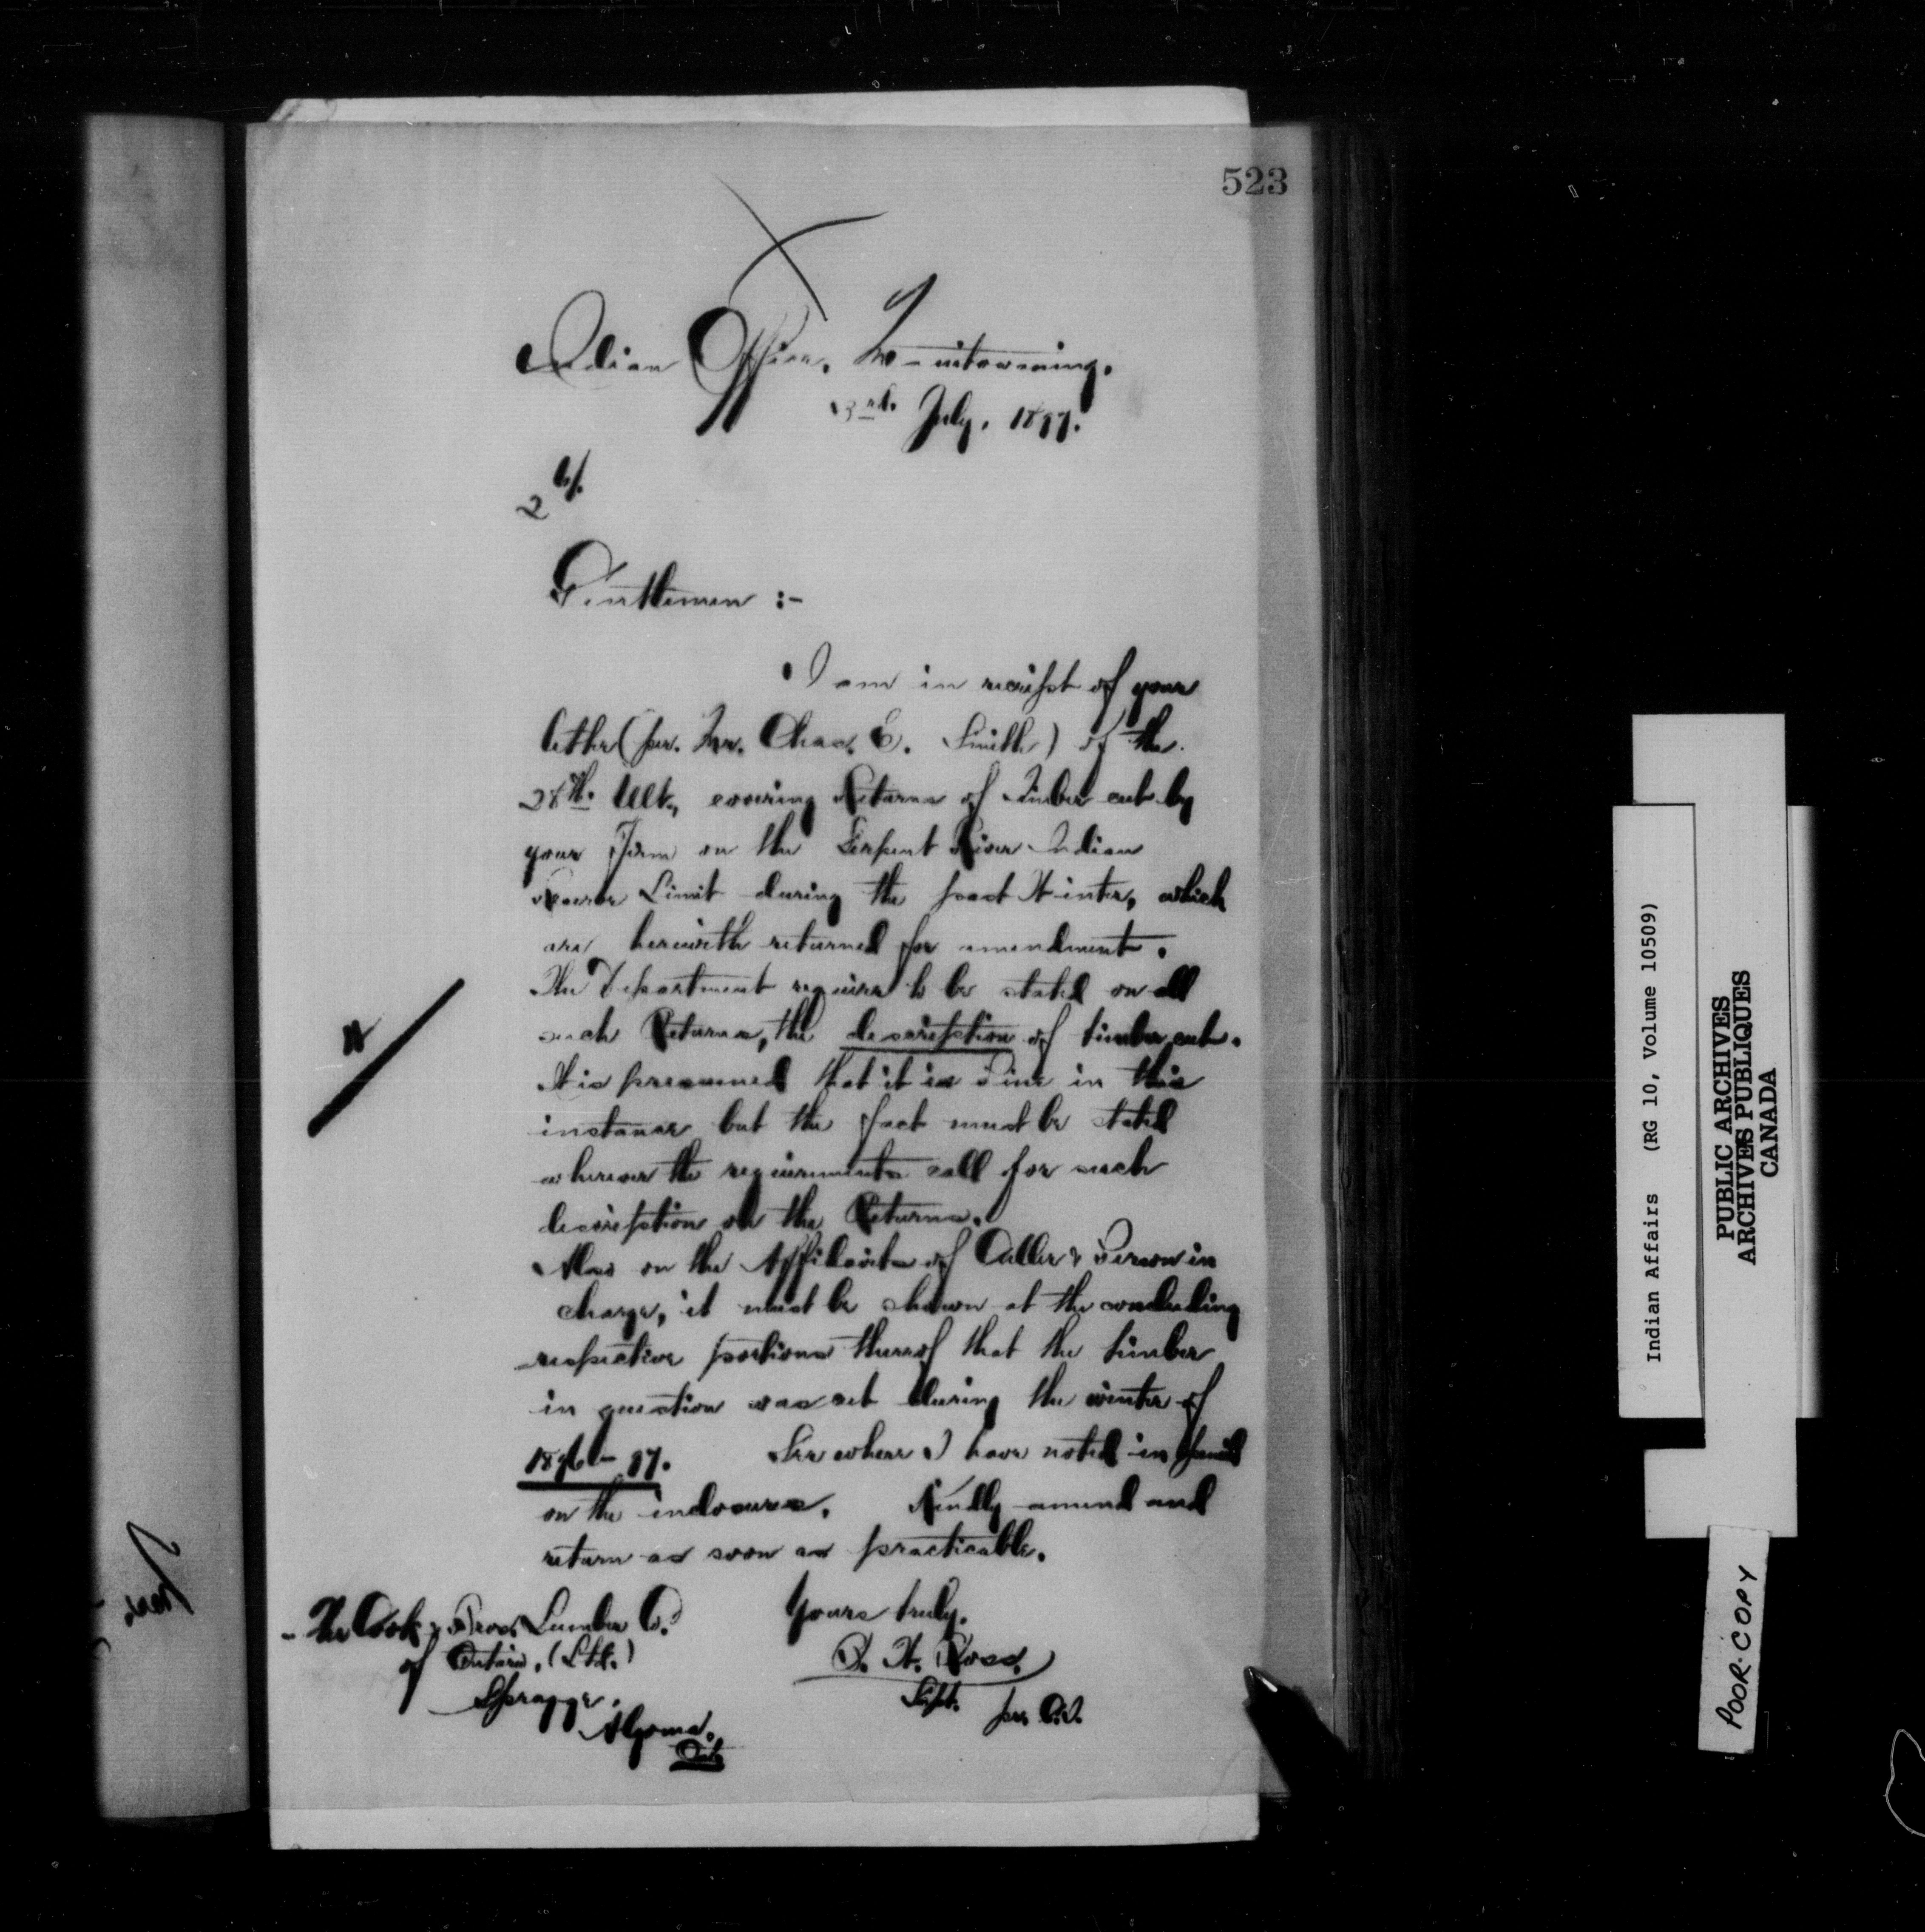 523
Indian Office, Manitowaning.
3rd. July, 1897.
Gentlemen :-
I am in receipt of your
letter (per. Mr. Chas. E. Smith) of the
28th. Ult., covering Returns of Timber cut by
your Firm on the Serpent River Indian
Reserve Limit during the past Winter, which
are herewith returned for amendment.
The Department require to be stated on all
such Returns, the description of timber cut.
It is presumed that it is Pine in this
instance but the fact must be stated
wherever the requirements call for such
description on the Returns.
Also on the Affidavits of Culler & Person in
charge, it must be shown at the concluding
respective portions thereof that the timber
in question was cut during the winter of
1896-97. See where I have noted in pencil
on the inclosures. Kindly amend and
return as soon as practicable.
Yours truly.
B. W. Ross
Supt.
The Cook & Bros. Lumber Co.
of Ontario, (Ltd.)
Spragge.
Algoma.
Ont.
Indian Affairs (RG 10, Volume 10509)
PUBLIC ARCHIVES
ARCHIVES PUBLIQUES
CANADA
POOR COPY